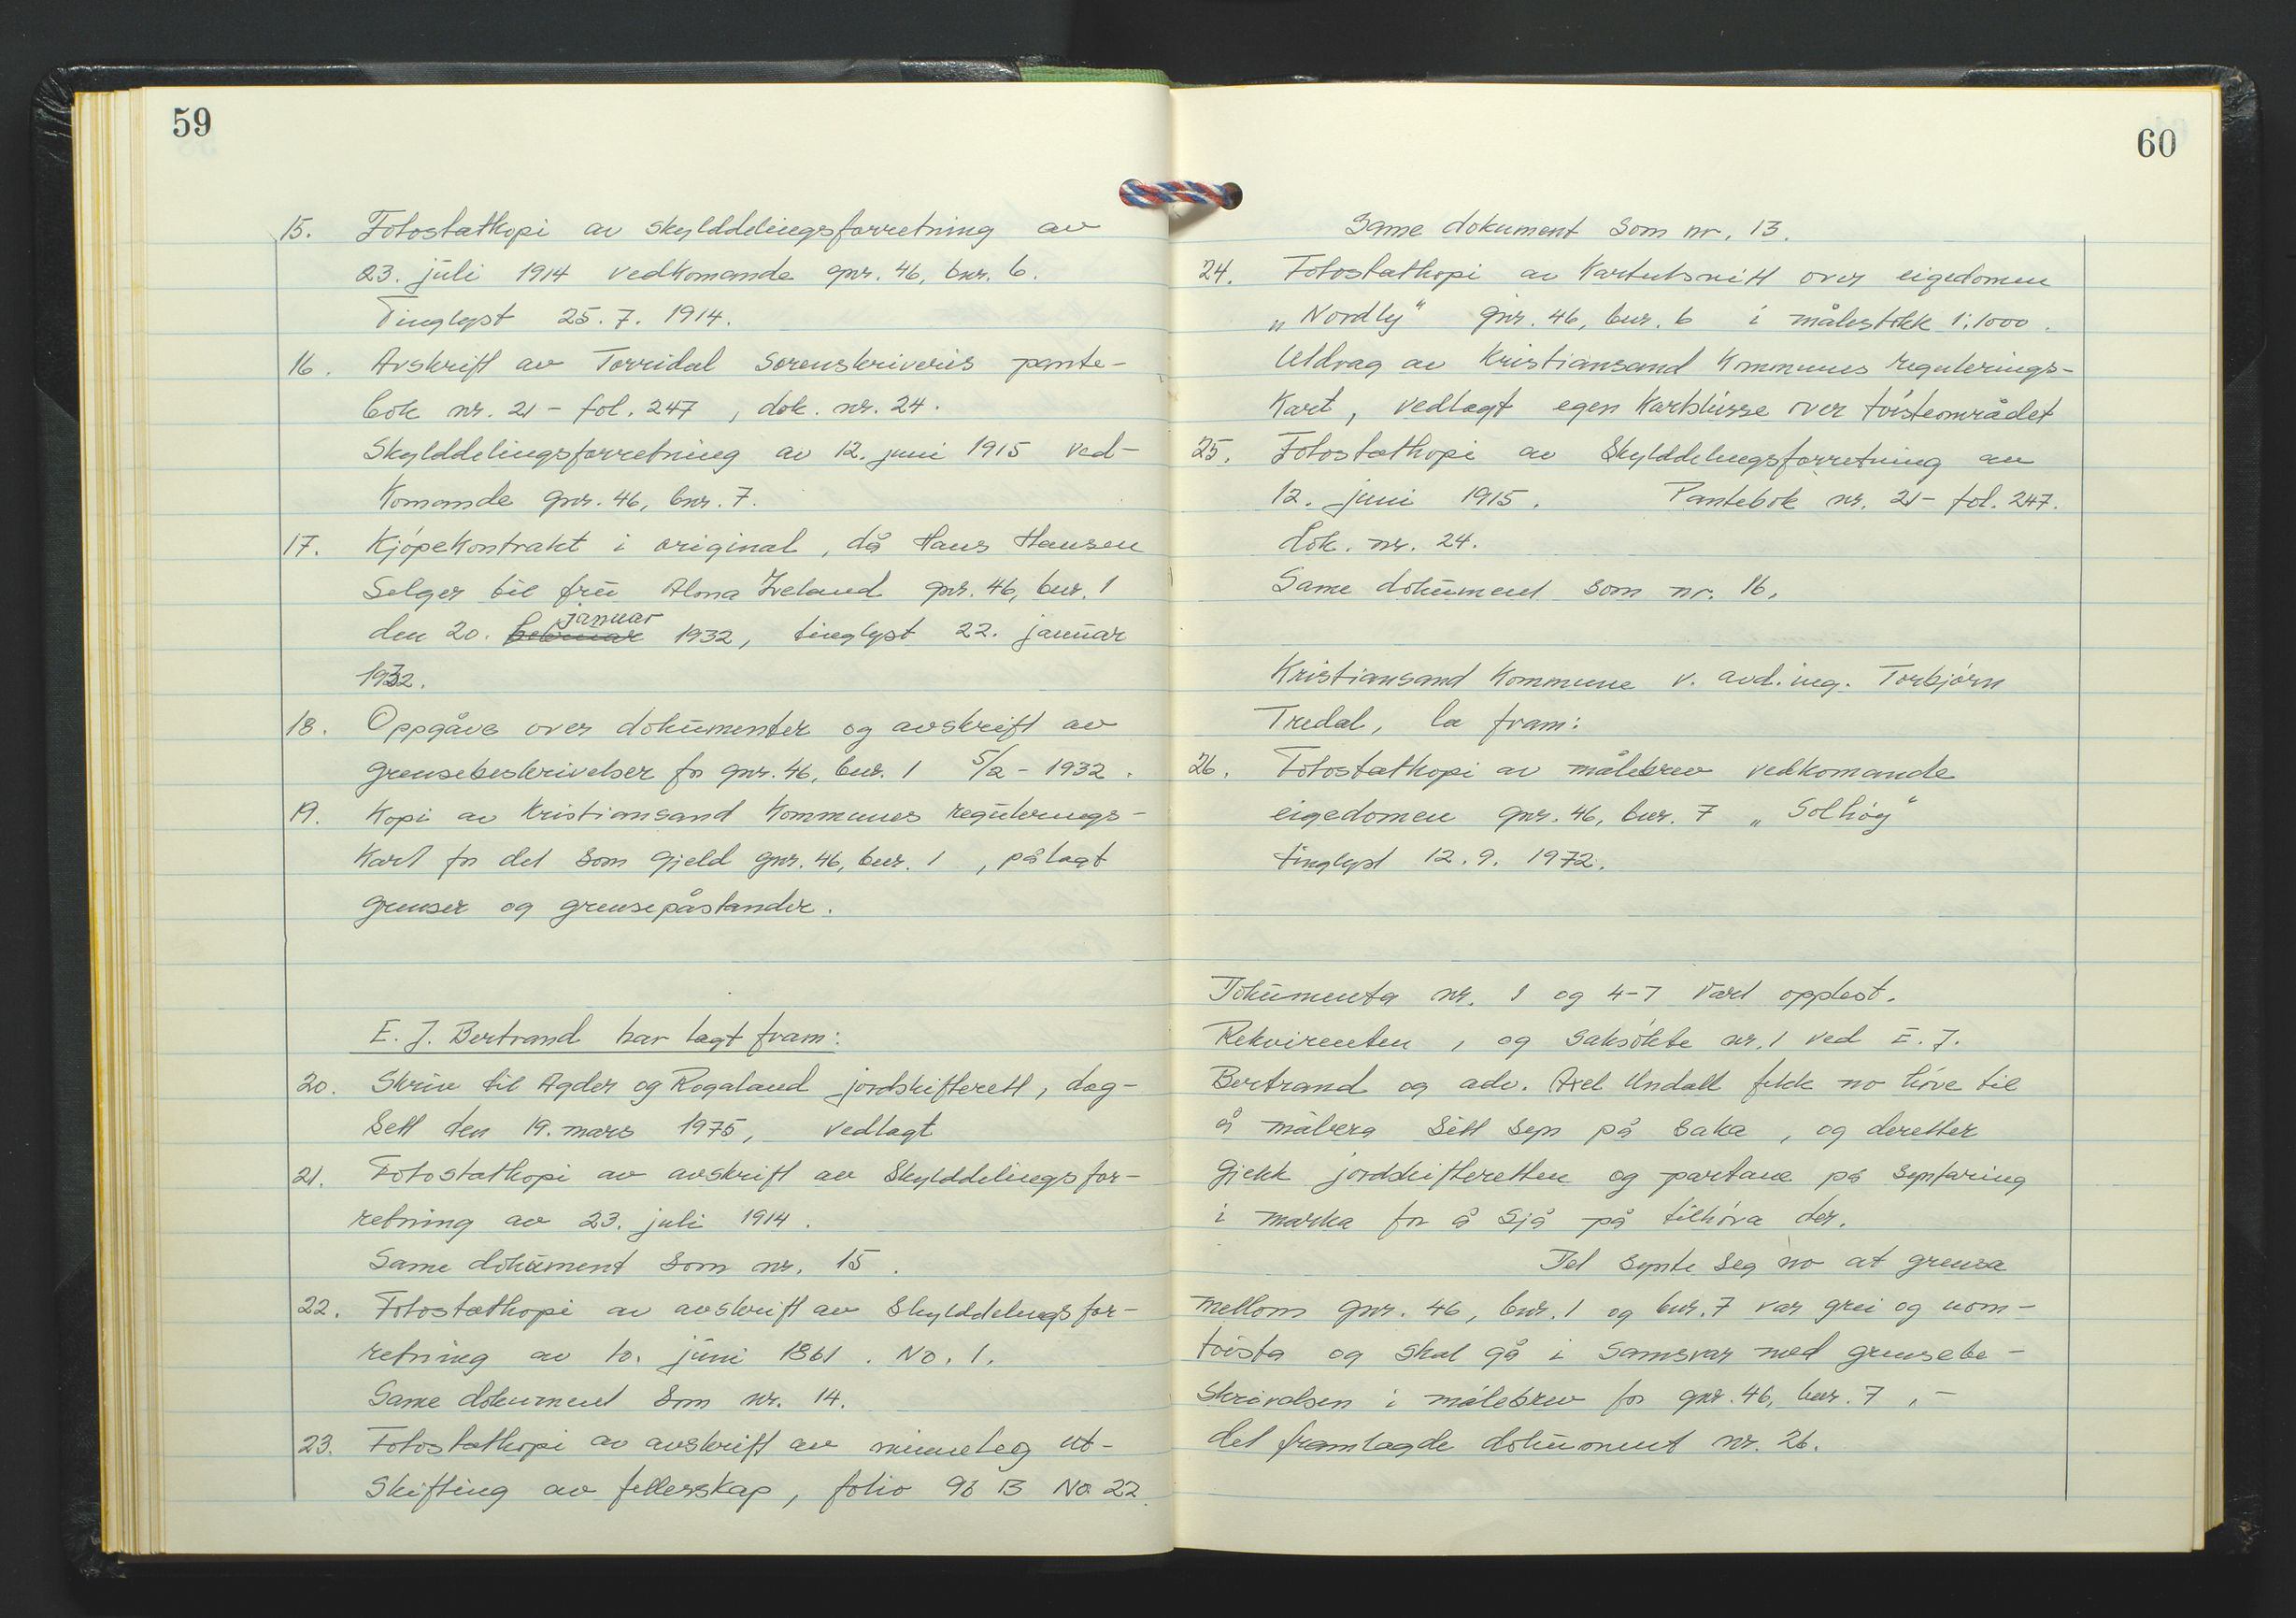 59
15. Fotostatkopi av skylddelingsforretning av
23. juli 1914 vedkomande gnr. 46, bnr. 6.
Tinglyst 25.7. 1914.
16. Avskrift av Torridal Sorenskriveris pante-
bok nr. 21 - fol. 247, dok. nr. 24.
Skylddelingsforretning av 12. juni 1915 ved-
komande gnr. 46, bnr. 7.
17. Kjøpekontrakt i original, då Hans Hansen
Selger til fru Alma Iveland gnr. 46, bnr. 1
den 20. februar januar 1932, tinglyst 22. januar
1932.
18. Oppgåve over dokumenter og avskrift av
grensebeskrivelser for gnr. 46, bnr. 1 5/2 - 1932.
19. Kopi av Kristiansand Kommunes regulerings-
kart for det som gjeld gnr. 46, bnr. 1, pålagt
grenser og grensepåstander.
E. J. Bertrand har lagt fram:
20. Skriv til Agder og Rogaland jordskifterett, dag-
sett den 19. mars 1975, vedlagt
21. Fotostatkopi av avskrift av Skylddelingsfor-
retning av 23. juli 1914.
Same dokument som nr. 15.
22. Fotostatkopi av avskrift av Skylddelingsfor-
retning av 10. juni 1861. No. 1.
Same dokument som nr. 14.
23. Fotostatkopi av avskrift av minneleg ut-
skifting av fellesskap, folio 96 B No 22.
60
Same dokument som nr. 13.
24. Fotostatkopi av kartutsnitt over eigedomen
„Nordly" gnr. 46, bnr. 6 i målestokk 1:1000.
Utdrag av Kristiansand Kommunes regulerings-
kart, vedlagt egen kartskisse over tvisteområdet
25. Fotostatkopi av Skylddelingsforretning av
12. juni 1915. Pantebok nr. 21 - fol. 247.
dok. nr. 24.
Same dokument som nr. 16.
Kristiansand Kommune v. avd.ing. Torbjørn
Tredal, la fram:
26. Fotostatkopi av målebrev vedkomande
eigedomen gnr. 46, bnr. 7 „Solhøg"
tinglyst 12.9. 1972.
Dokumenta nr. 1 og 4-7 vart opplest.
Rekvirenten, og saksøkte nr. 1 ved E. J.
Bertrand og adv. Axel Undall fekk no høve til
å målbera sitt syn på saka, og deretter
gjekk jordskifteretten og partane på synfaring
i marka for å sjå på tilhøva der.
Det synte seg no at grensa
mellom gnr. 46, bnr. 1 og bnr. 7 var grei og uom-
tvista og skal gå i samsvar med grensebe-
skrivelsen i målebrev for gnr. 46, bnr. 7, -
det framlagde dokument nr. 26.